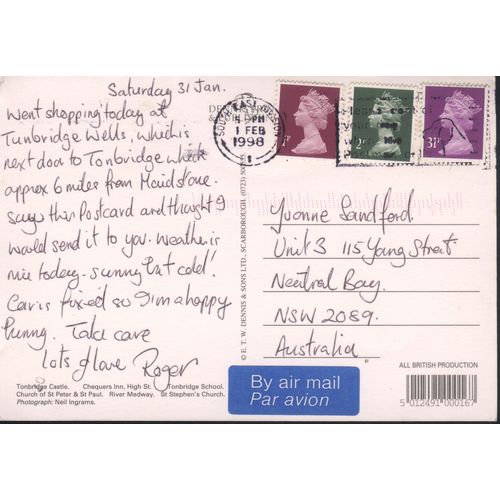 Saturday 31 Jan.
Went shopping today at
Tunbridge Wells, which is
next door to Tonbridge which
approx 6 miles from Maidstone.
Saw this Postcard and thought I
would send it to you. Weather is
nice today - sunny but cold!
Car is fixed so I'm a happy
hunny. Take care
lots of love Roger
Tonbridge Castle. Chequers Inn, High St. Tonbridge School.
Church of St Peter & St Paul. River Medway. St Stephen's Church.
Photograph: Neil Ingrams.
© E. T. W. DENNIS & SONS LTD., SCARBOROUGH. (0723)
SOUTH EAST
PM
1 FEB
1998
2P
31P
Yvonne Sandford.
Unit 3 115 Young Street
Neutral Bay.
NSW 2089.
Australia
By air mail
Par avion
ALL BRITISH PRODUCTION
5 012491 000167